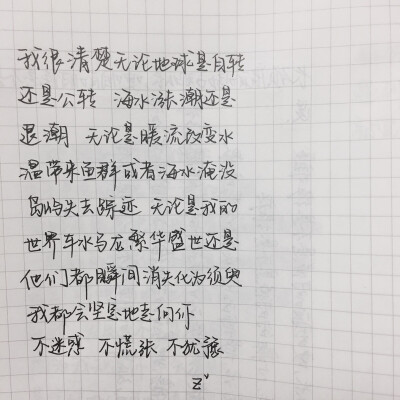 我很清楚无论地球是自转
还是公转 海水涨潮还是
退潮 无论是暖流改变水
温带来鱼群或者海水淹没
岛屿失去踪迹 无论是我的
世界车水马龙繁华盛世还是
他们都瞬间消失化为须臾
我都会坚定地走向你
不迷惑 不慌张 不犹豫